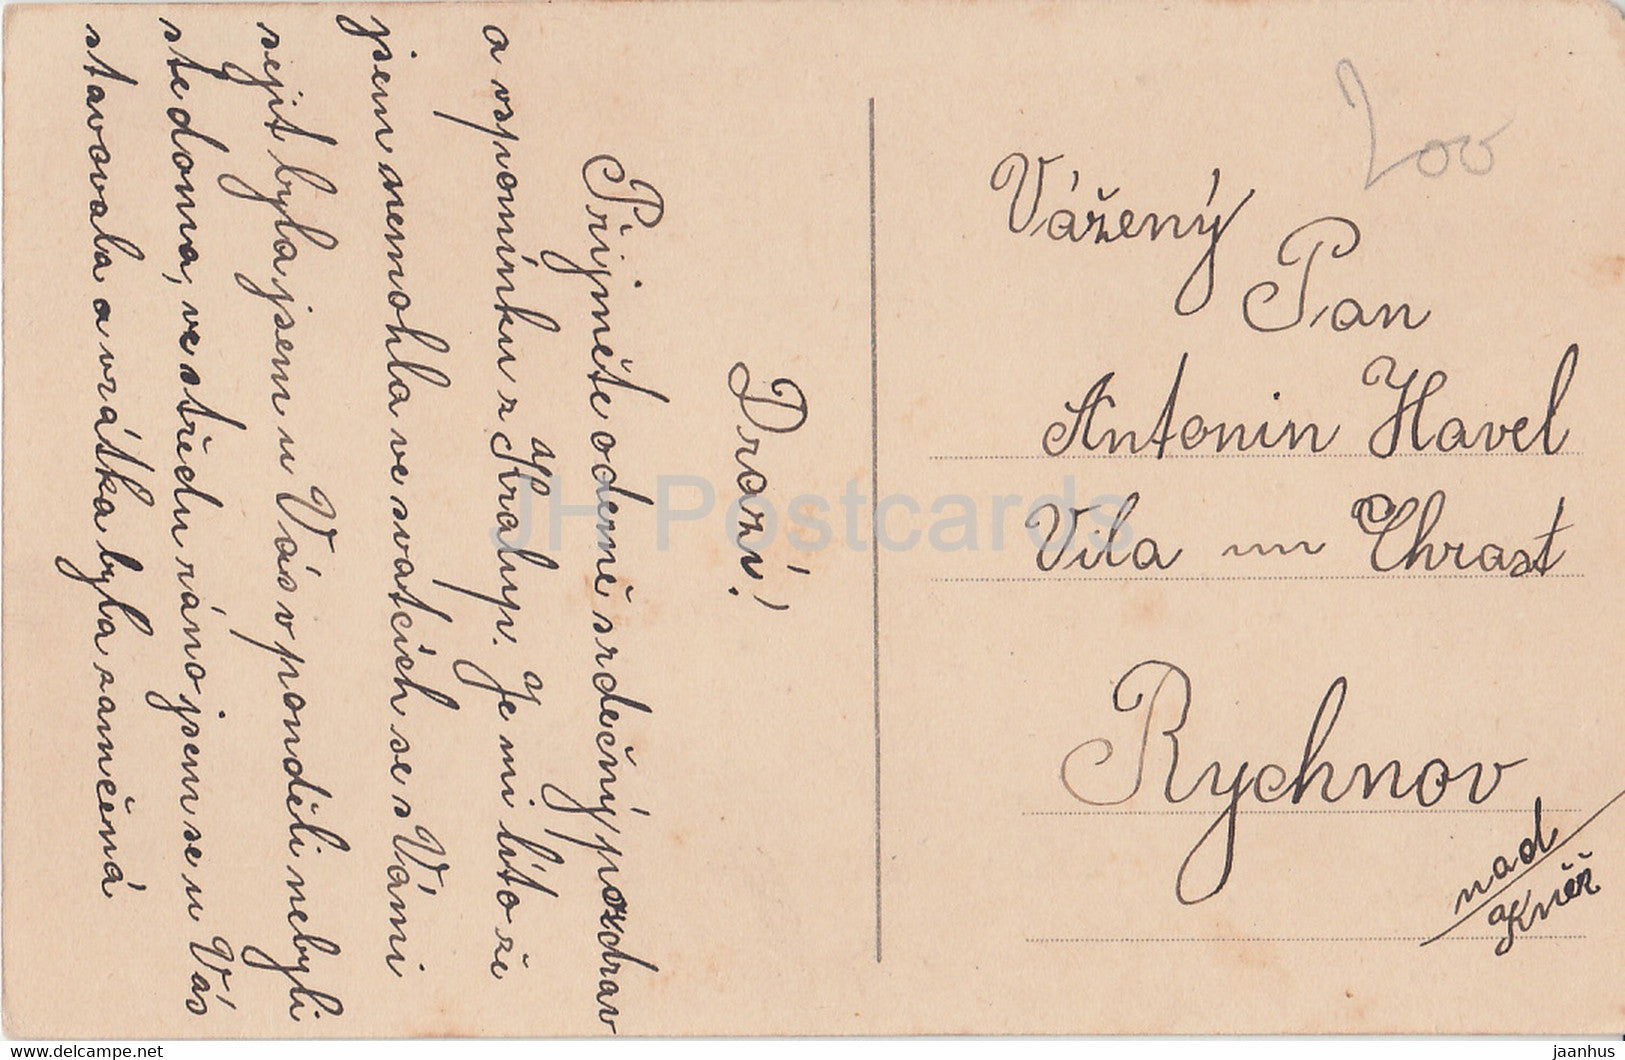 Drazí!
Prijměte odemě srdečný pozdrav
a vspomínku z Kralup. Je mi líto že
jsem nemohla ve svatcích se s Vámi
sejít byla jsem u Vás v pondělí nebyli
ste doma, ve středu ráno jsem se u Vás
stavovala a vrátka byla zamčená
200
Vážený
Pan
Antonin Havel
Vila un Chrast
Rychnov
nad
Kněž
JH Postcards
hippostcard.com
jaanhus